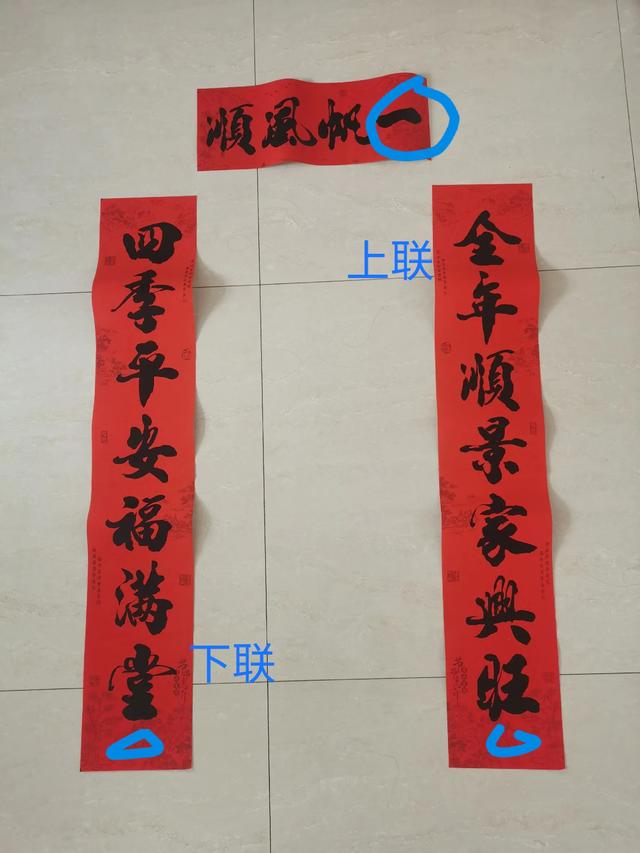 一帆風順
上联
全年順景家興旺
四季平安福满堂
下联